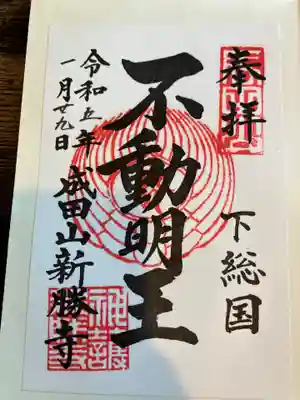 奉拝
下総国
不動明王
成田山新勝寺
令和五年
一月廿九日